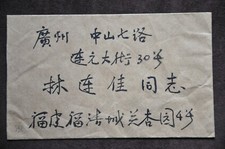 廣州 中山七路
連元大街30号
林连佳同志
福建福清城兰杏园4号